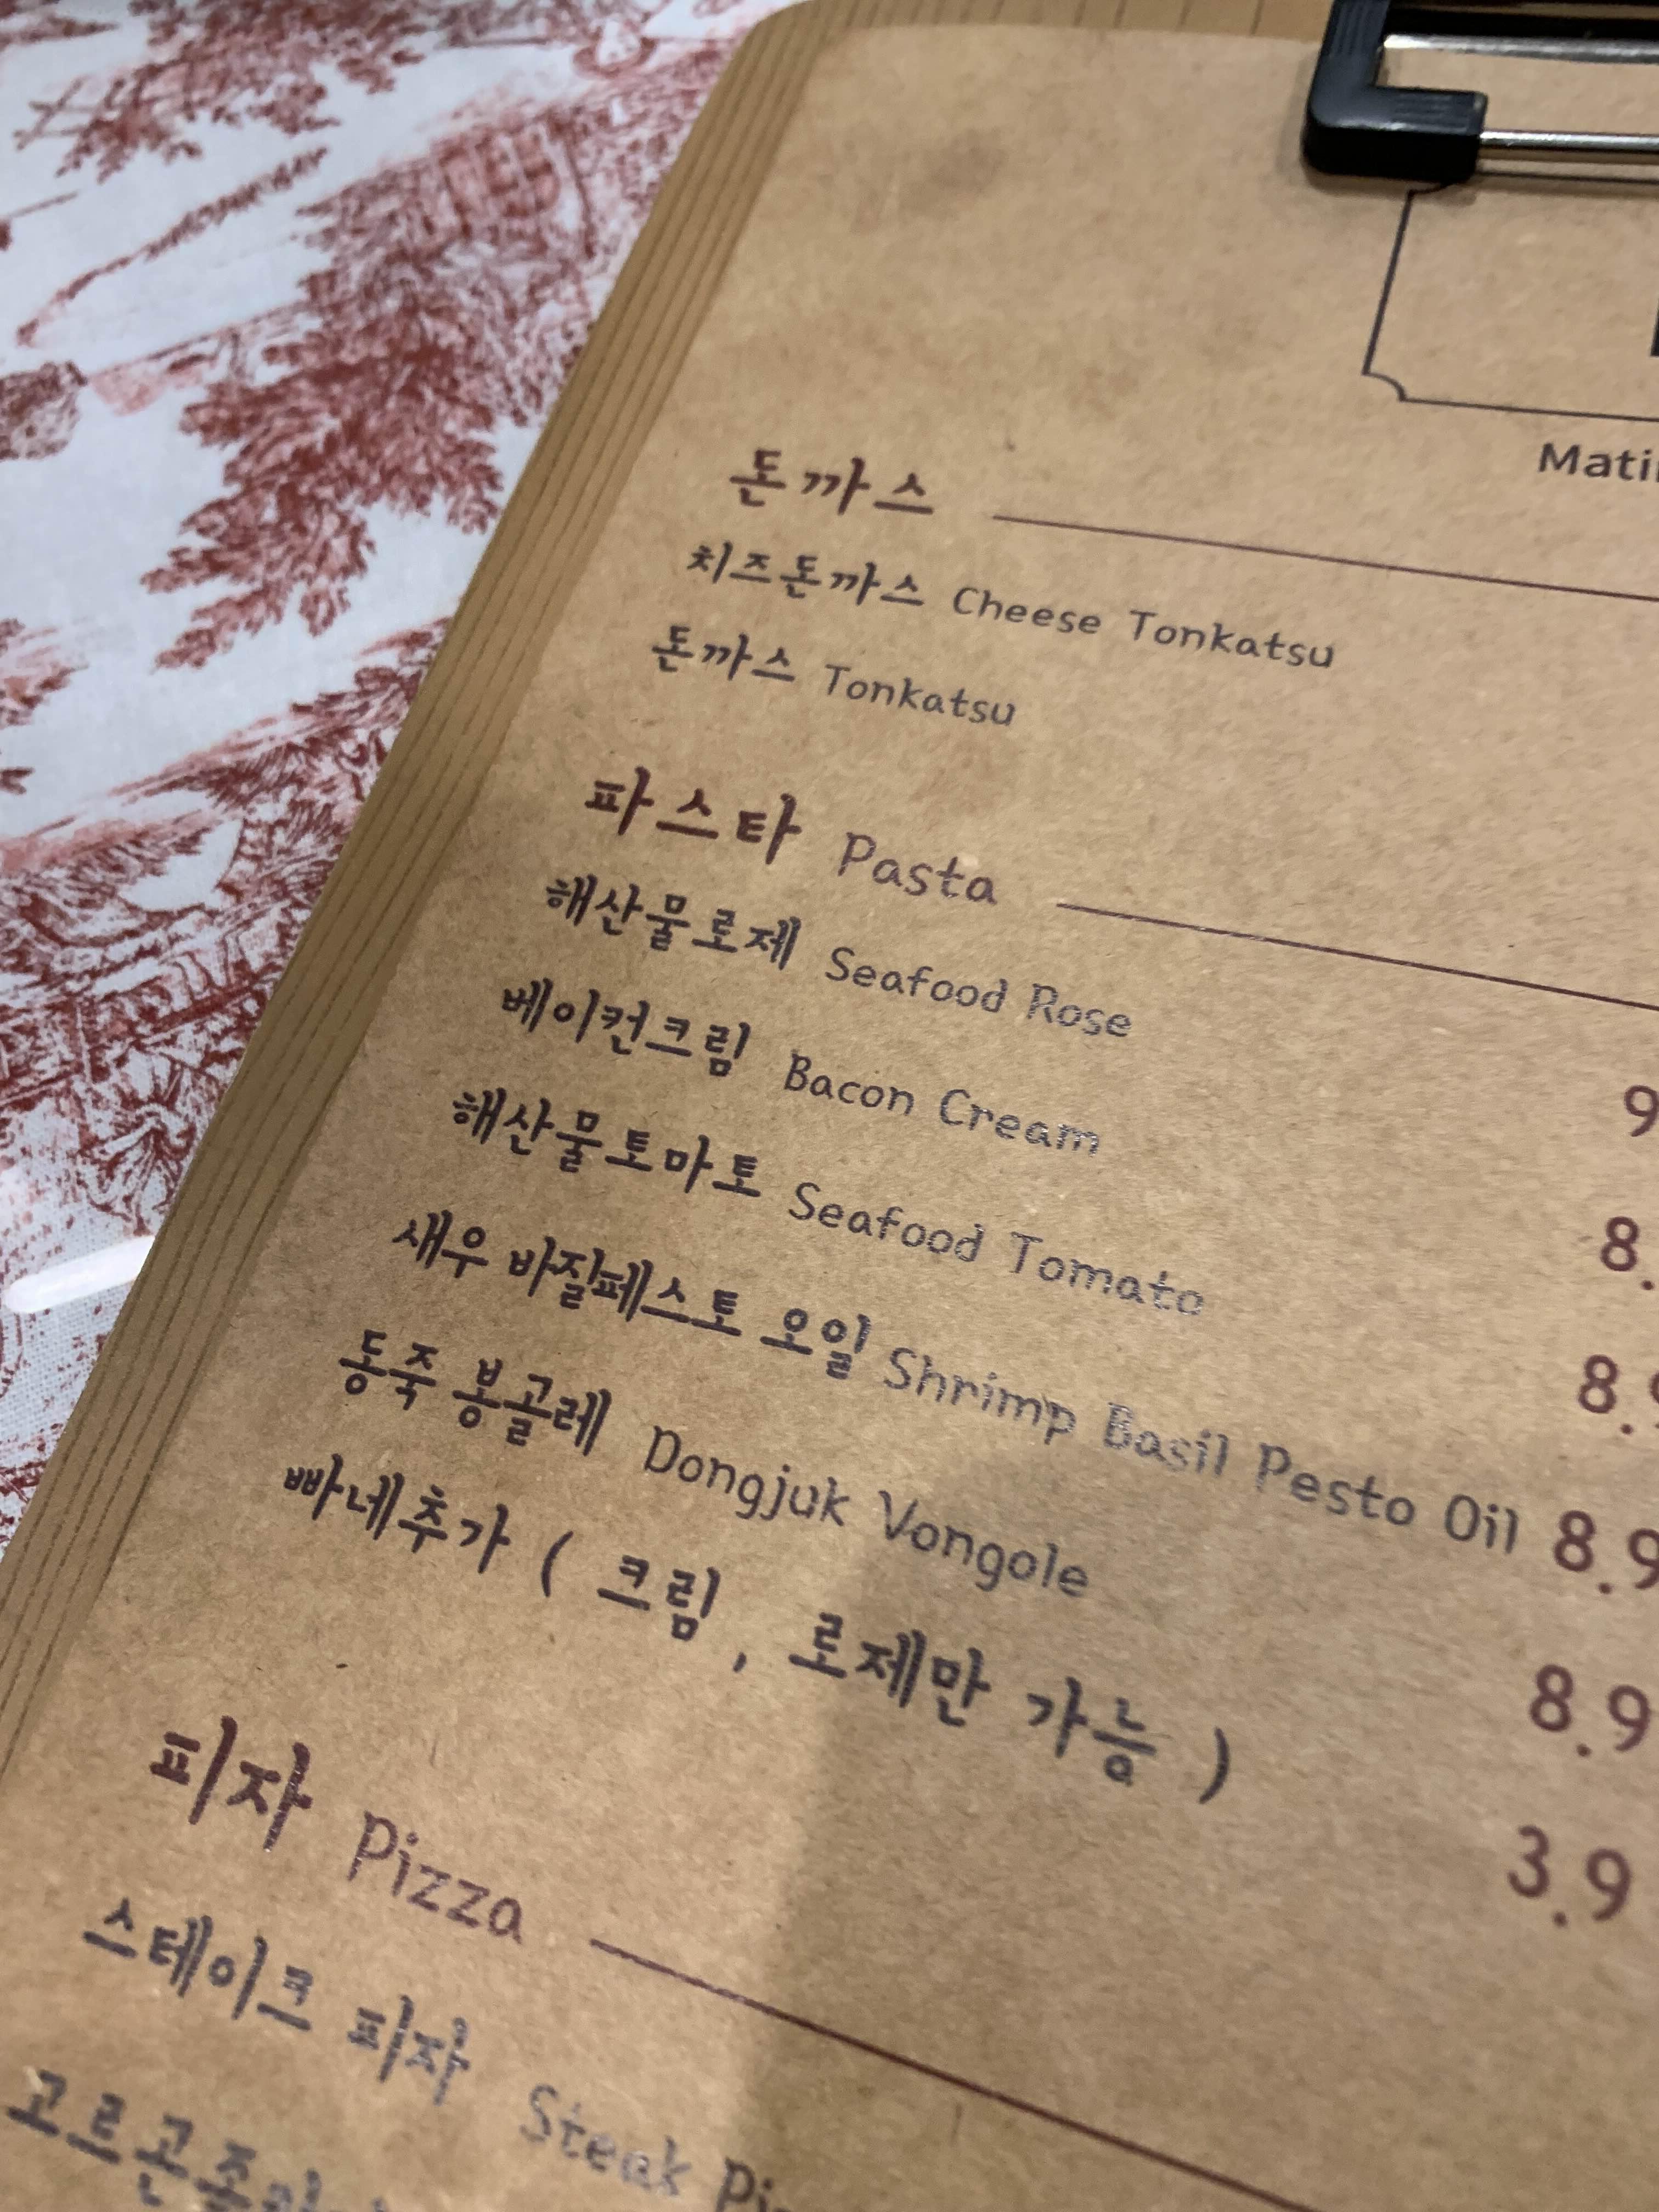 돈까스
치즈돈까스 Cheese Tonkatsu
돈까스 Tonkatsu
파스타 Pasta
해산물로제 Seafood Rose
베이컨크림 Bacon Cream
해산물토마토 Seafood Tomato
새우 바질페스토 오일 Shrimp Basil Pesto Oil 8.9
동죽 봉골레 Dongjuk Vongole 8.9
빠네추가 ( 크림 , 로제만 가능 ) 3.9
피자 Pizza
스테이크 피자 Steak